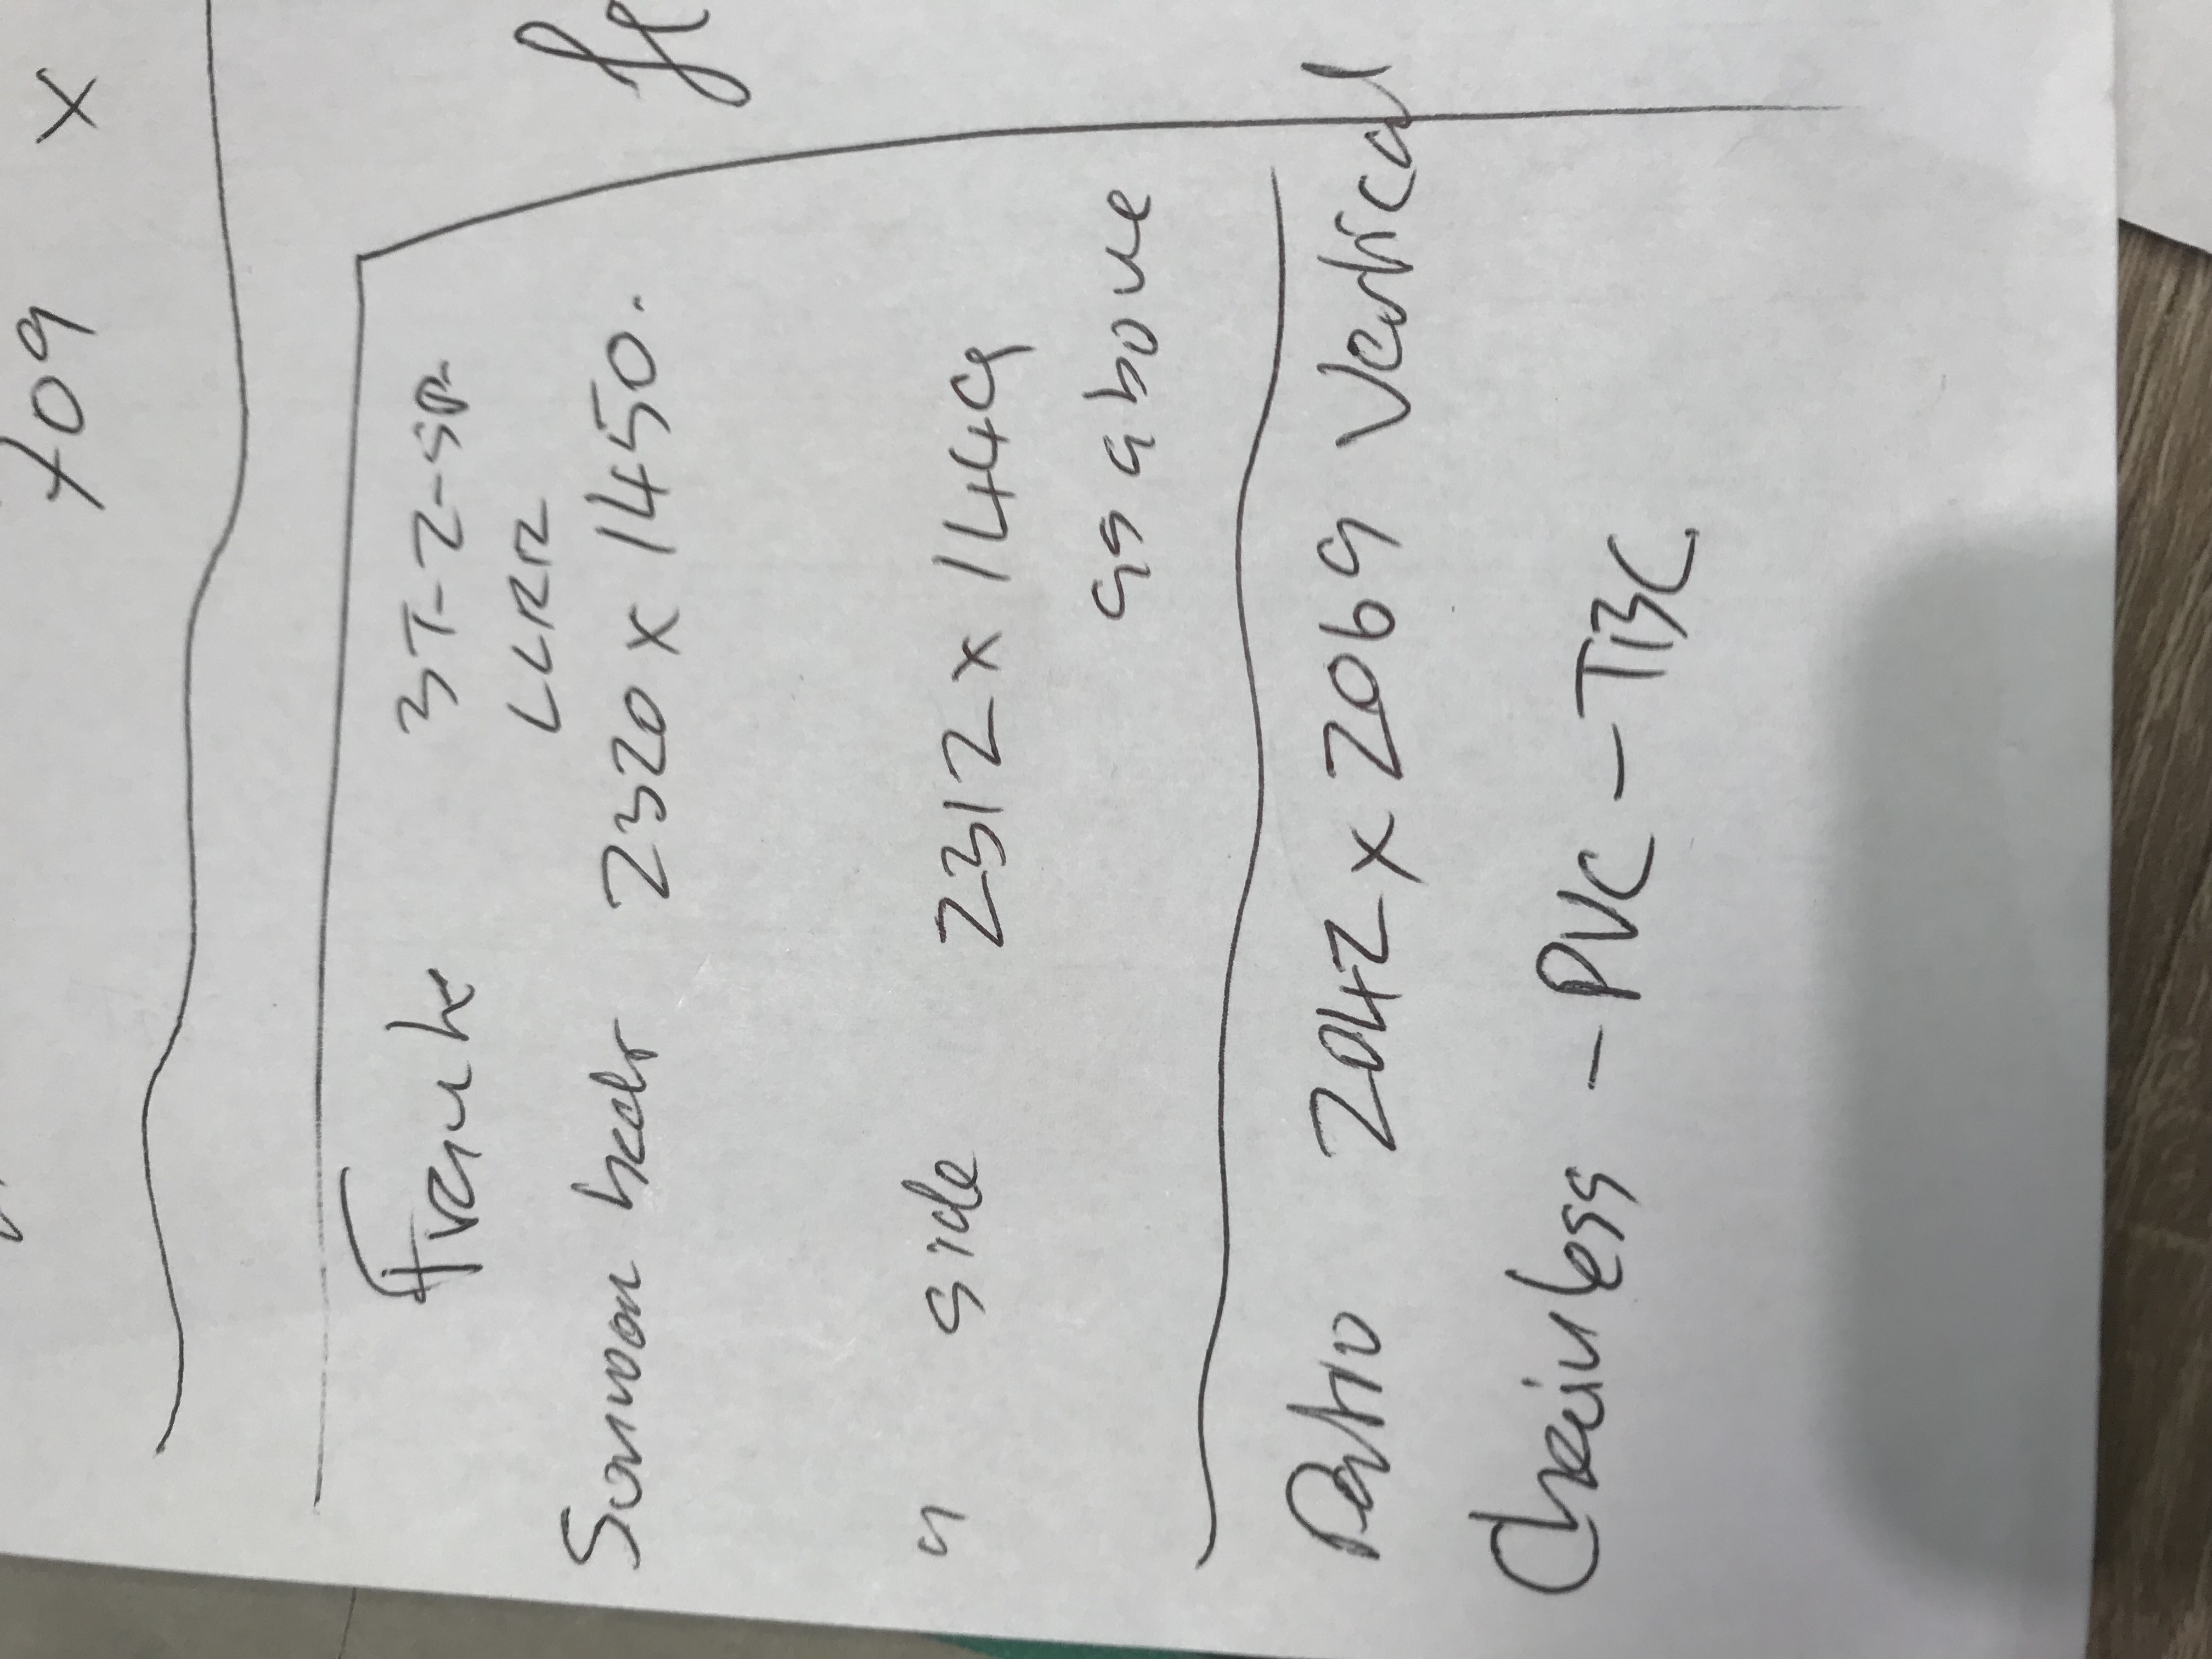 709 x
Frank 3T-Z-SP-
LLRR
Sunroom back 2320 x 1450.
" side 2312 x 1449
as above
Patio 2042 x 2069 Vertical
Chainless - PVC - TBC